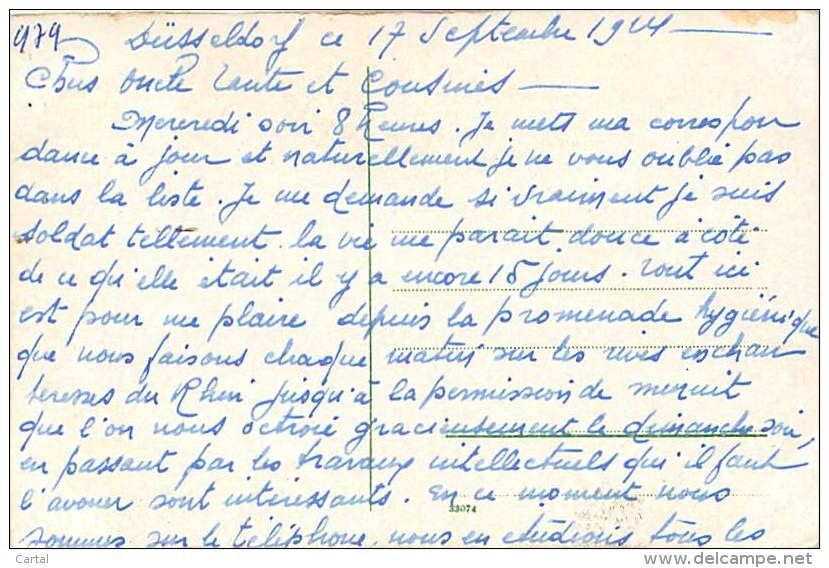 979
Düsseldorf ce 17 Septembre 1924
Chers Oncle Tante et Cousines
Mercredi soir 8 heures. Je mets ma correspon
dance à jour et naturellement je ne vous oublie pas
dans la liste. Je me demande si vraiment je suis
soldat tellement la vie me parait douce à côté
de ce qu'elle était il y a encore 15 jours. Tout ici
est pour me plaire depuis la promenade hygiénique
que nous faisons chaque matin sur les rives enchan
teresses du Rhin jusqu'à la permission de minuit
que l'on nous octroie gracieusement le dimanche soir,
en passant par les travaux intellectuels qu'il faut
l'avouer sont intéressants. En ce moment nous
33074
sommes sur le téléphone, nous en étudions tous les
Cartal
delcampe.net